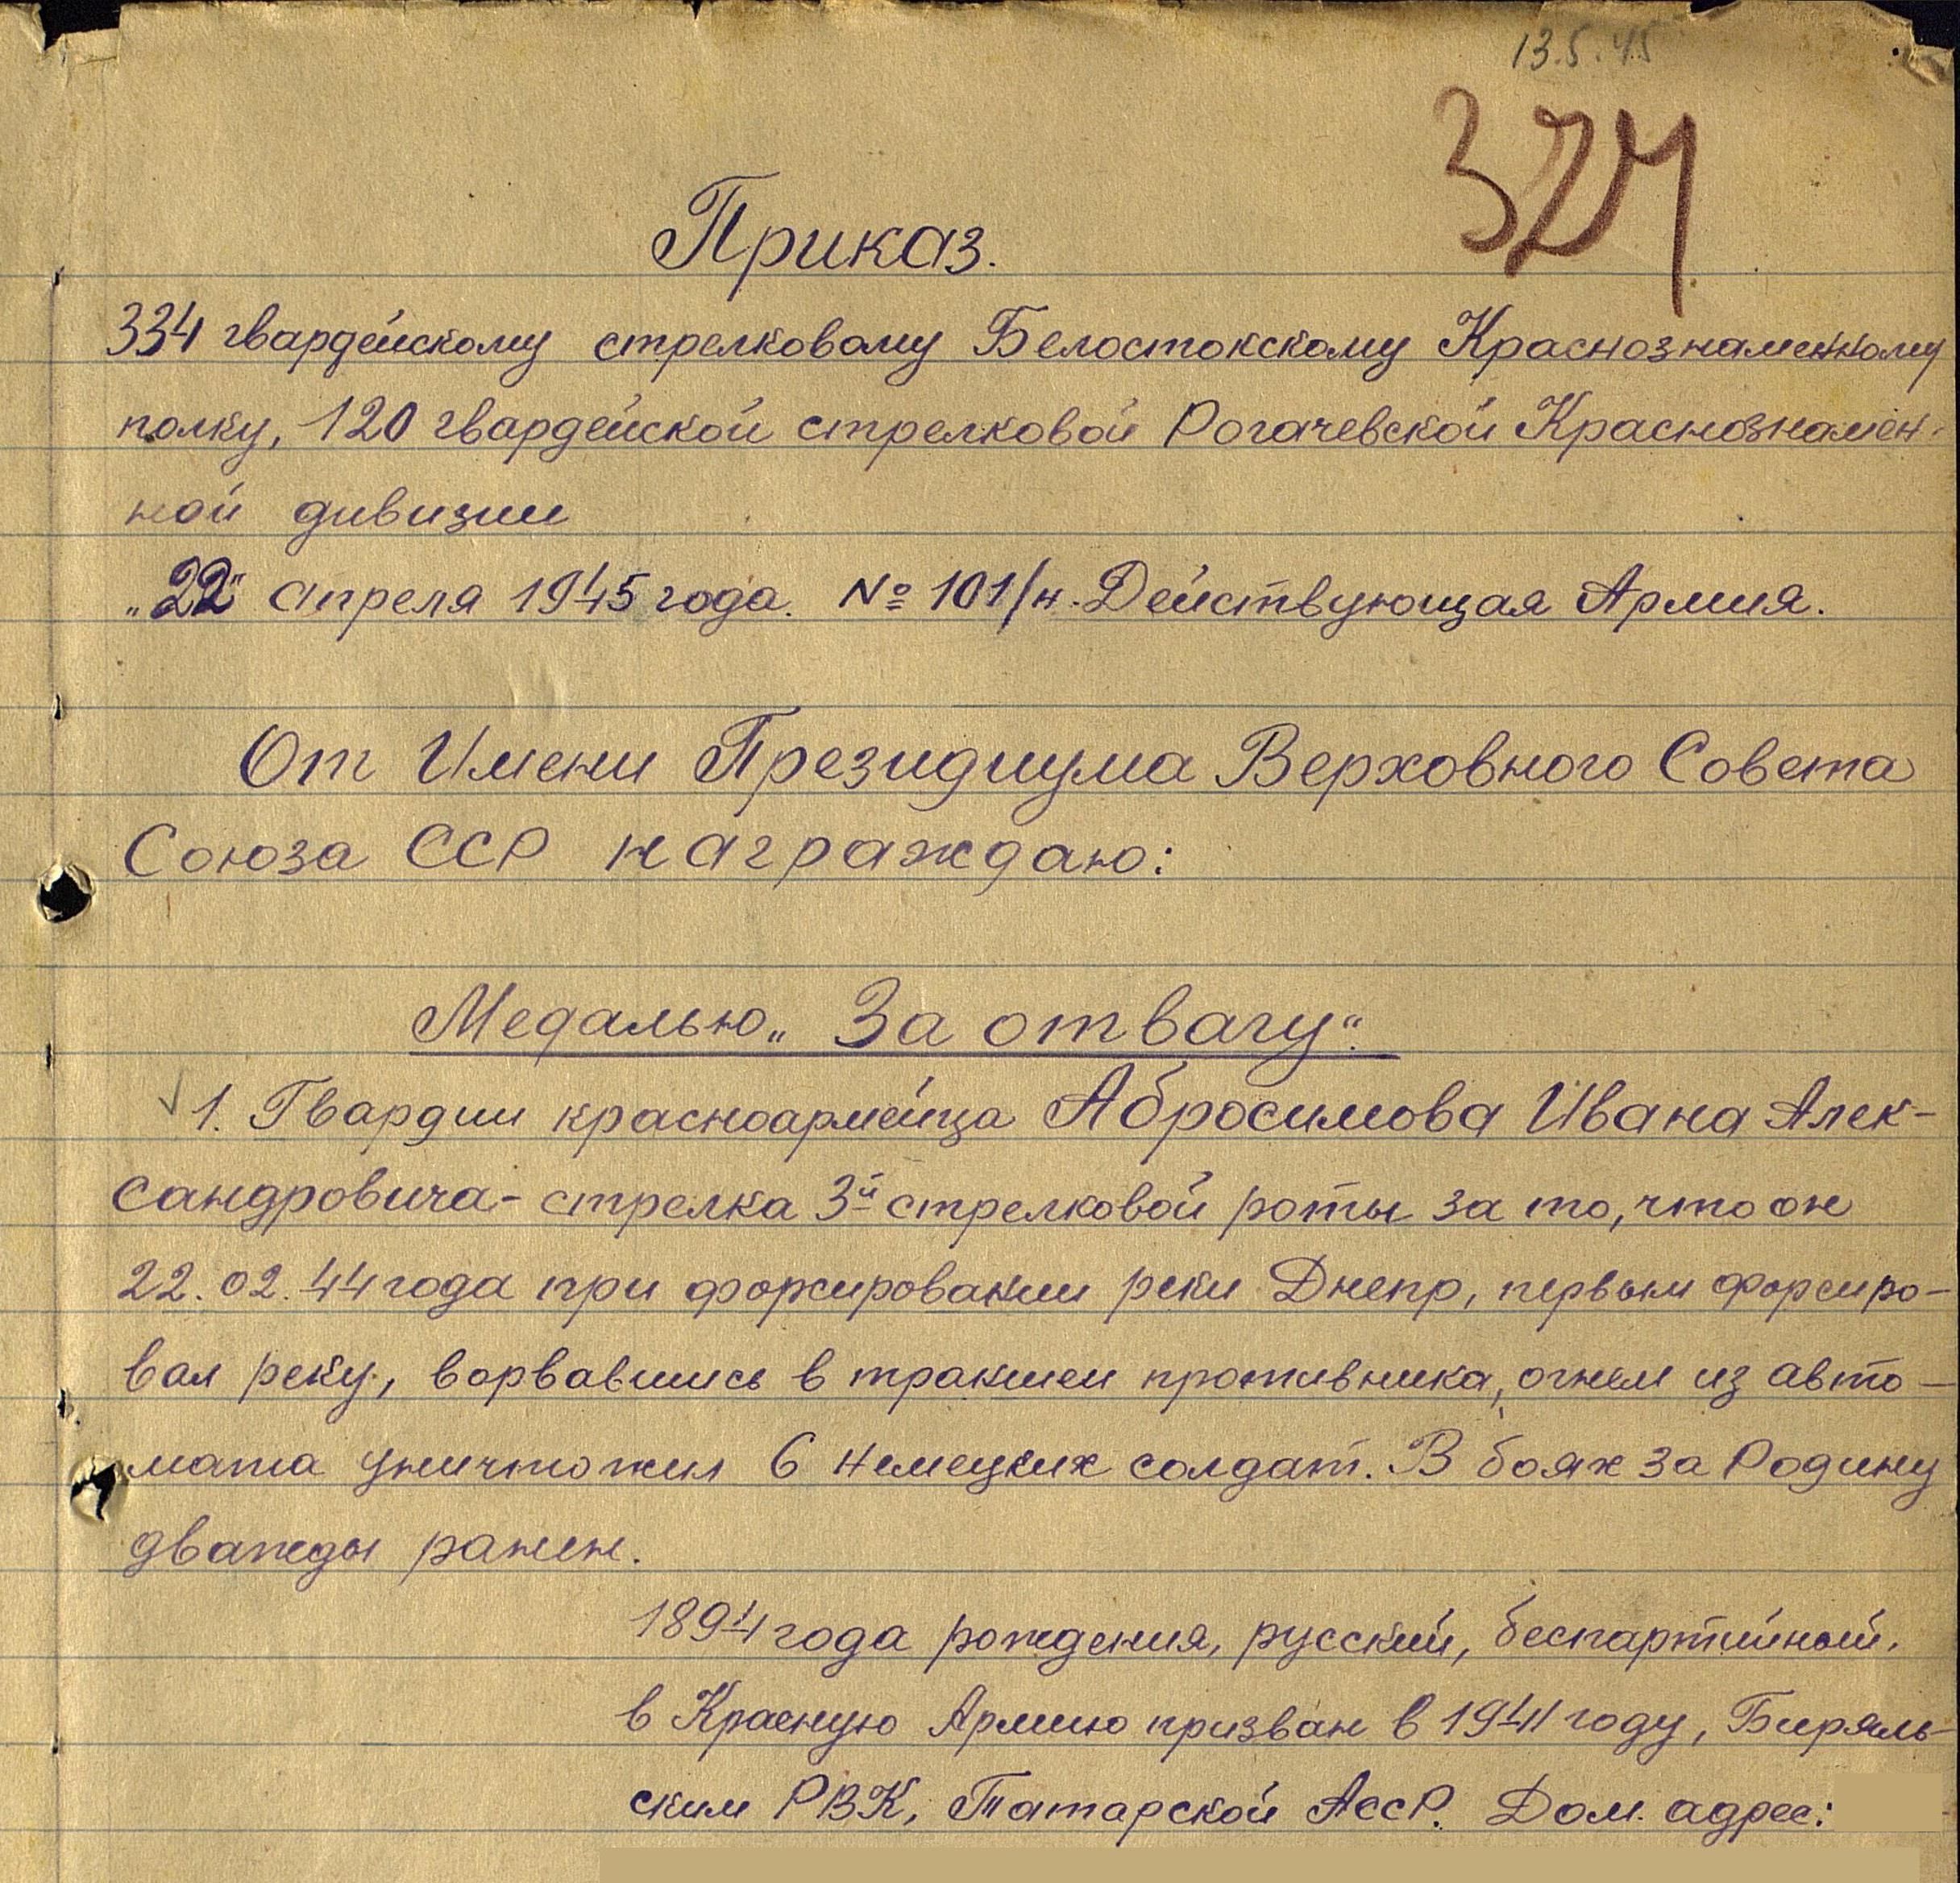 13.5.45
324
Приказ.
334 гвардейскому стрелковому Белостокскому Краснознаменному
полку, 120 гвардейской стрелковой Рогачевской Краснознамен-
ной дивизии
„22“ апреля 1945 года. № 101/н. Действующая Армия.
От Имени Президиума Верховного Совета
Союза ССР награждаю:
Медалью „За отвагу“.
1. Гвардии красноармейца Абросимова Ивана Алек-
сандровича - стрелка 3й стрелковой роты за то, что он
22.02.44 года при форсировании реки Днепр, первым форсиро-
вал реку, ворвавшись в траншеи противника, огнем из авто-
мата уничтожил 6 немецких солдат. В боях за Родину
дважды ранен.
1894 года рождения, русский, беспартийный,
в Красную Армию призван в 1941 году, Биряль-
ским РВК, Татарской АССР. Дом. адрес: